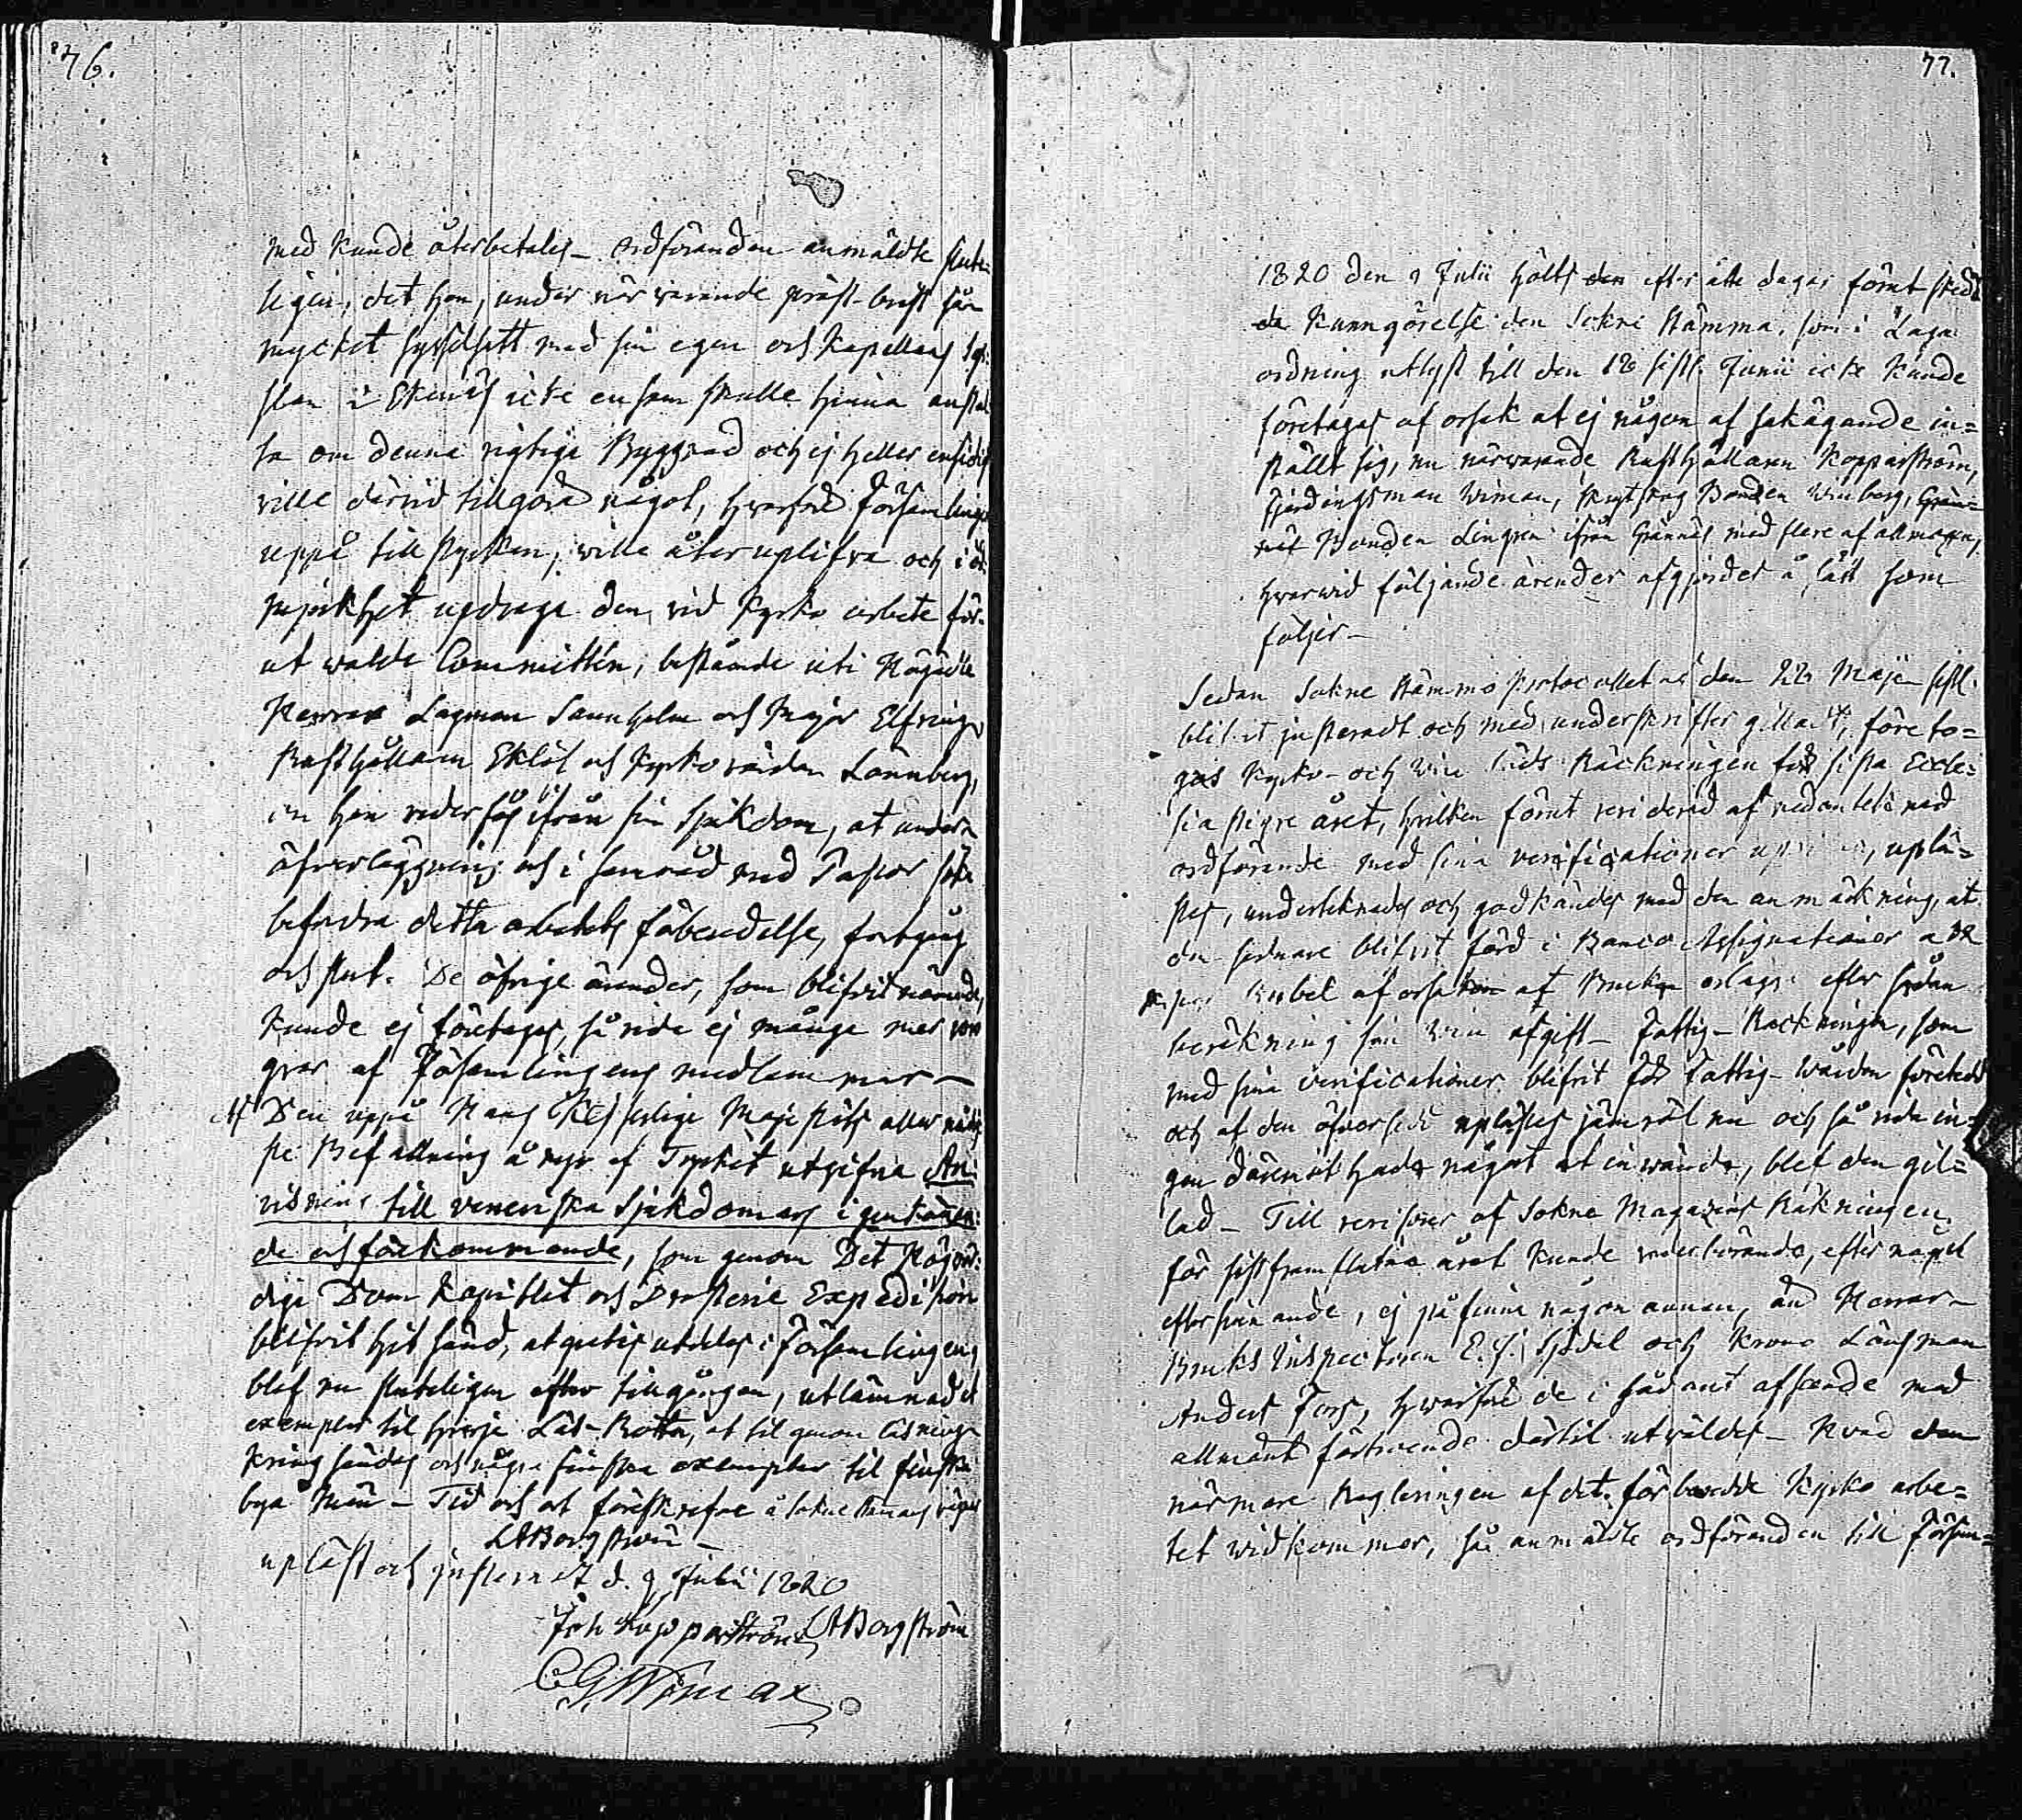 76.
med kunde återbetales – ordföranden anmälde slute-
ligen, det han, under närvarande präst-brist så
mycket sysselsatt med sin egen och Kapellans sys-
slan i Ekenäs icke ensam skulle hinna anstal-
ta om denna vigtiga Byggnad och ej heller ensidigt
ville därvid tillgöra något, hvarföre Församlingen
uppå tillstyrkan, ville åter uplifva och i öd-
mjukhet updraga den, vid Kyrko arbete för-
ut walde Committén, bestående uti Högädle
Herrar Lagman Sannholm och Major Elfving,
Rusthållaren Eklöf och Kyrko värden Lönnberg,
en han vederfås ifrån sin sjukdom, at under
öfverläggning och i samråd med Pastor söka
befordra detta arbetets förberedelse, fortgång
och slut. De öfrige ärender, som blifvit nämnde,
kunde ej företagas, så vida ej många mer voro
qvar af Församlingens medlemmar –
Den uppå Hans Kejserlige Majestäts aller nådig-
ste Befallning å nyo af Trycket utgifne An-
visning till veneriska Sjukdomars igenkännan-
de och förekommande, som genom Det Högvör-
dige Dom Kapitlet och Prosterie Expedition
blifvit hit sänd, at gratis utdelas i Församlingen,
blef nu sluteligen efter tillgången, utlämnad et
exemplar til hvarje Läs-Rotta, at til genom läsnings
kring sändas och några finska exemplar til finska
bya män – Tid och ort föreskrefne å sokne stämmans vägnar
LABorgström –
upläst och justerat d. 9 Julii 1820
Joh Kopparström LABorgström
CGWiman
77.
1820 den 9 Julii hölts den efter åtta dagar förut sked-
da Kunngörelse den Sokne stämma, som i Laga
ordning utlyst till den 18 sistl. Junii icke kunde
företagas af orsak at ej någon af sakägande in-
ställt sig, nu närwarande Rusthållaren Kopparström,
Fjerdingsman Wiman, Bonden Winberg,
Bonden Lingren ifrån Grännäs med flere af allmogen,
hvarwid följande ärender afgjordes å, sätt som
följer –
Sedan Sokne stämmo Protocollet af den 22 Maji sistl.
blifvit justeradt och med underskrifter gilladt, företo-
gas Kyrko- och Räckningen för sista Eccle-
siastigve året, hvilken förut reviderad af nedantecknad
ordförande med sina verificationer uplä-
stes, undertecknades och godkändes med den anmärkning, at
den sednare blifvit förd i Banco Assignationer a
Rubel af orsaken at Bruken erlägga efter sådan
beräkning sin afgift – Fattig-Räckningen, som
med sina verificationer blifvit för Fattig-Wården företedd
och af den öfversedd uplästes jämväl nu och så vida in-
gen däremot hade något at inwända, blef den gil-
lad – Till revisorer af Sokne Magazins Räkningen
för sistframflutna året kunde vederbörande, efter noget
eftersinnande, ej påfinna någon annan, än Herrar
Bruks Inspectoren E. J. Sjödel och Krono Länsman
Anders Fors, hwarföre de i sådant afseende med
allmänt förtroende därtil utvaldes – Hvad den
närmare Regleringen af det förberedde Kyrko arbe-
tet widkommer, så anmälte ordföranden till Församl-